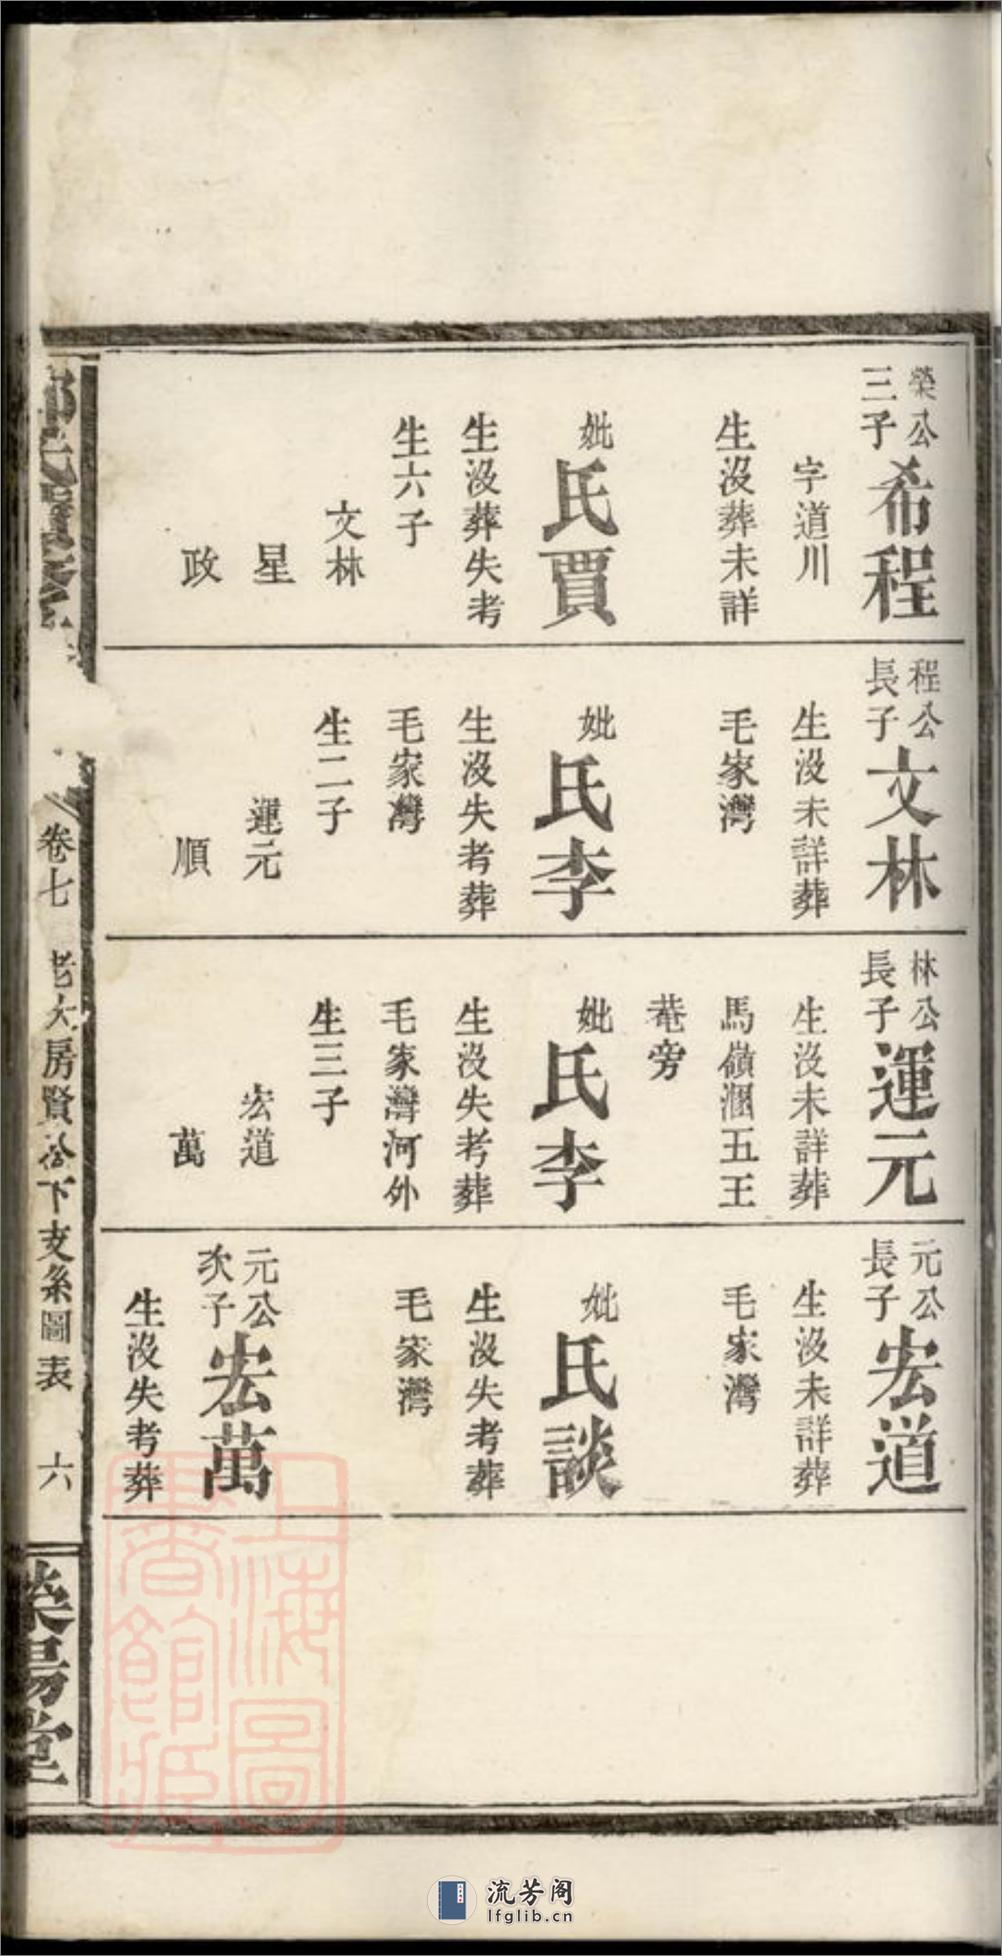 榮公
三子
希程
字道川
生沒葬未詳
妣
氏賈
生沒葬失考
生六子
文林
星
政
程公
長子
文林
生沒未詳葬
毛家灣
妣
氏李
生沒失考葬
毛家灣
生二子
運元
順
林公
長子
運元
生沒未詳葬
馬嶺溷五王
菴旁
妣
氏李
生沒失考葬
毛家灣河外
生三子
宏道
萬
元公
長子
宏道
生沒未詳葬
毛家灣
妣
氏談
生沒失考葬
毛家灣
元公
次子
宏萬
生沒失考葬
卷七
老大房賢公下支系圖表
六
滎陽堂
上海圖
書館藏
流芳阁
lfglib.cn